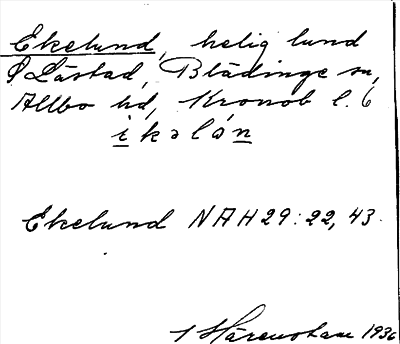 Ekelund, helig lund
Ö Låstad, Blädinge sn,
Allbo hd, Kronob l. 6
i k ə l ó n
Ekelund NAH 29: 22, 43.
1936